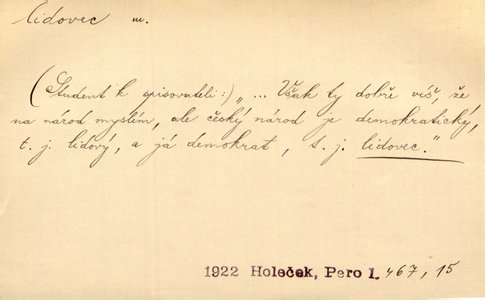 lidovec m.
(Student k spisovateli:) „... Však ty dobře víš, že
na národ myslím, ale český národ je demokratický,
t. j. lidový, a já demokrat, t. j. lidovec.“
1922 Holeček, Pero I. 467, 15